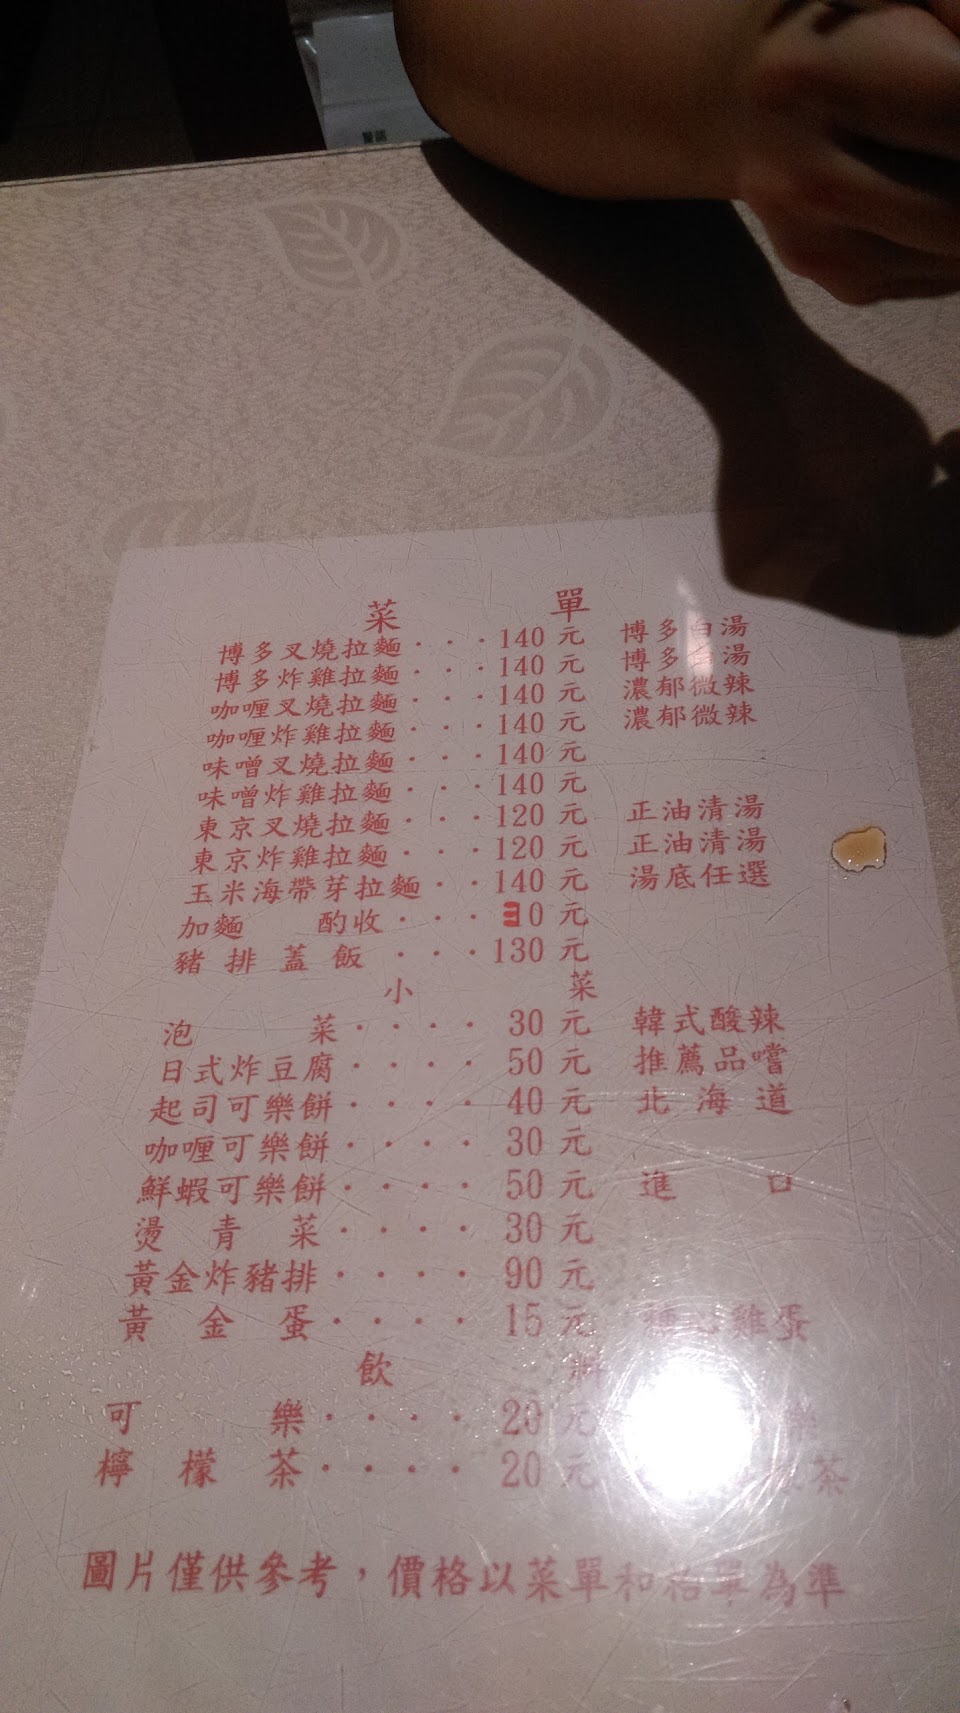 菜 單
博多叉燒拉麵···140元 博多白湯
博多炸雞拉麵···140元 博多白湯
咖喱叉燒拉麵···140元 濃郁微辣
咖喱炸雞拉麵···140元 濃郁微辣
味噌叉燒拉麵···140元
味噌炸雞拉麵···140元
東京叉燒拉麵···120元 正油清湯
東京炸雞拉麵···120元 正油清湯
玉米海帶芽拉麵··140元 湯底任選
加麵 酌收···30元
豬排蓋飯···130元
小 菜
泡 菜····30元 韓式酸辣
日式炸豆腐····50元 推薦品嚐
起司可樂餅····40元 北海道
咖喱可樂餅····30元
鮮蝦可樂餅····50元 進 口
燙青菜····30元
黃金炸豬排····90元
黃金蛋····15元 糖心雞蛋
飲 料
可 樂····20元
檸檬茶····20元 茶
圖片僅供參考，價格以菜單和格單為準